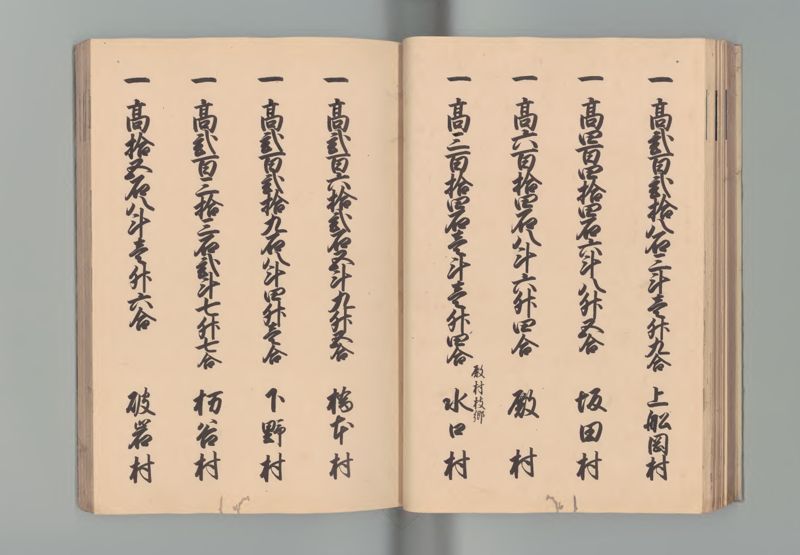 一高弐百弐拾八石三斗壱升九合 上舩岡村
一高四百四拾四石六斗八升五合 坂田村
一高六百拾四石八斗六升四合 殿村
殿村枝郷
一高三百拾四石壱斗壱升四合 水口村
一高弐百六拾弐石五斗九升五合 橋本村
一高弐百弐拾九石八斗四升壱合 下野村
一高弐百三拾三石弐斗七升七合 柄谷村
一高拾五石八斗壱升六合 破岩村